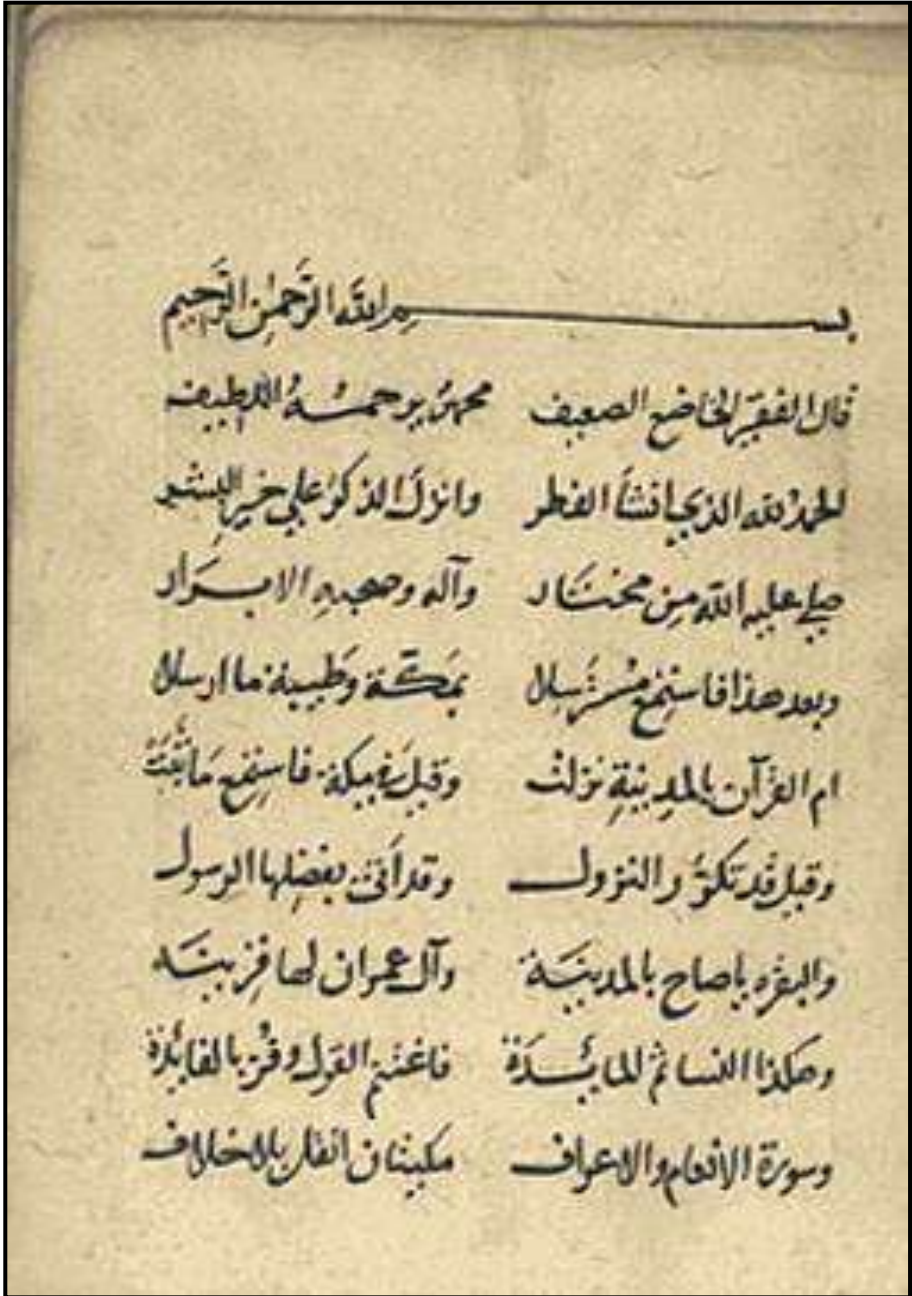 بسم الله الرَّحمٰنِ الرَّحِيم
قال الفقير الخاضع الضعيف محمدُ يرحمــهُ اللطيف
الحمدُ لله الذي انشأ الفطر وانزل الذكر على خير البشر
صلى عليه الله من مختــار وآله وصحبهِ الابــرَار
وبعد هذا فاستمع مُسترسلا بمَكّة وطَيبة ما ارسلا
ام القرآن بالمدينةِ نزلت وقبل بمكة فاستمع مَا
وقيل قد تكرّر النزول وقد أتى بفضلها الرسول
والبقره ياصاح بالمدينَــة وآل عمران لها قرينَــه
وهكذا النسا ثم المائــدَة فاغتنم القول وفُز بالفائدة
وسورة الانعام والاعراف مكيتان انقل بلا خلاف